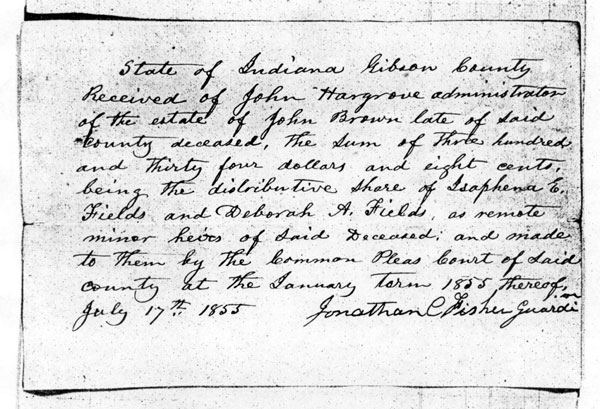 State of Indiana Gibson County
Received of John Hargrove administrator
of the estate of John Brown late of said
county deceased, the sum of three hundred
and thirty four dollars and eight cents,
being the distributive share of Isaphena E.
Fields and Deborah A. Fields, as remote
minor heirs of said Deceased; and made
to them by the Common Pleas Court of said
county at the January term 1855 thereof,
July 17th 1855 Jonathan C Fisher Guardian